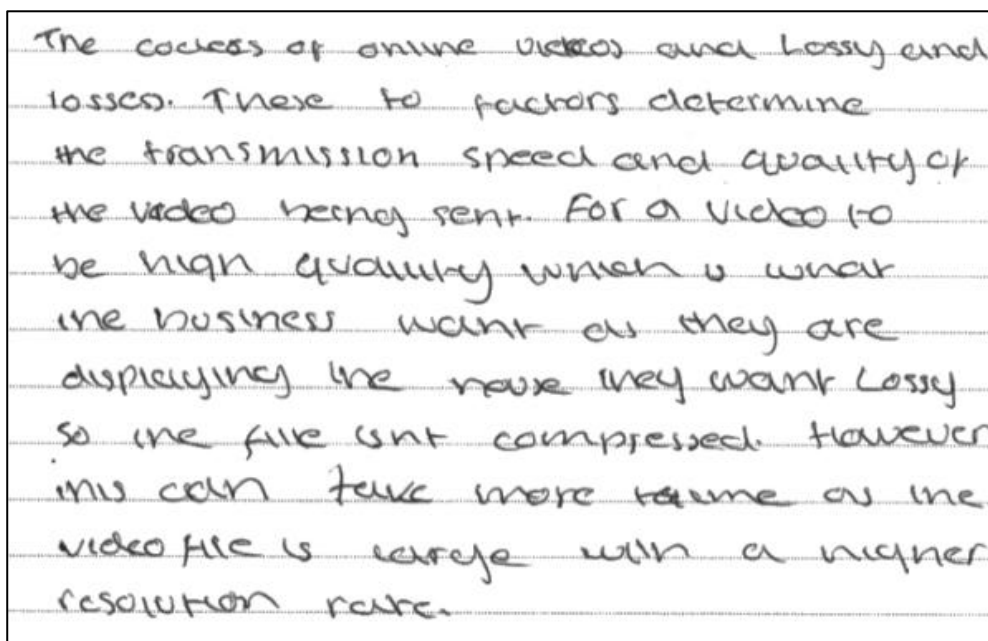 The codecs of online videos and Lossy and
losses. These to factors determine
the transmission speed and quality of
the video being sent. For a video to
be high quality which is what
the business want as they are
displaying the house they want Lossy
so the file isnt compressed. However
this can take more time as the
video file is large with a higher
resolution rate.